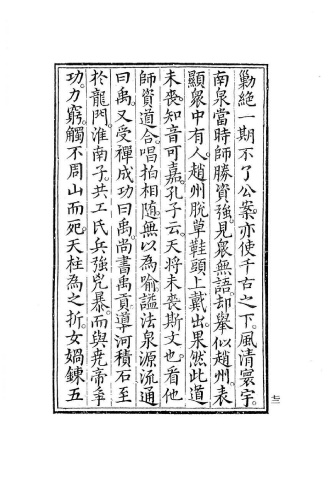 勦絕一期不了公案。亦使千古之下。風清寰宇。
南泉當時師勝資強。見衆無語。却舉似趙州。表
顯衆中有人。趙州脫草鞋頭上戴出。果然此道
未喪。知音可嘉。孔子云。天將未喪斯文也。看他
師資道合。唱拍相隨。無以為喻。謚法泉源流通
曰禹。又受禪成功曰禹。尚書禹貢。導河積石至
於龍門。淮南子。共工氏兵強兇暴。而與堯帝爭
功。力窮。觸不周山而死。天柱為之折。女媧鍊五
七三